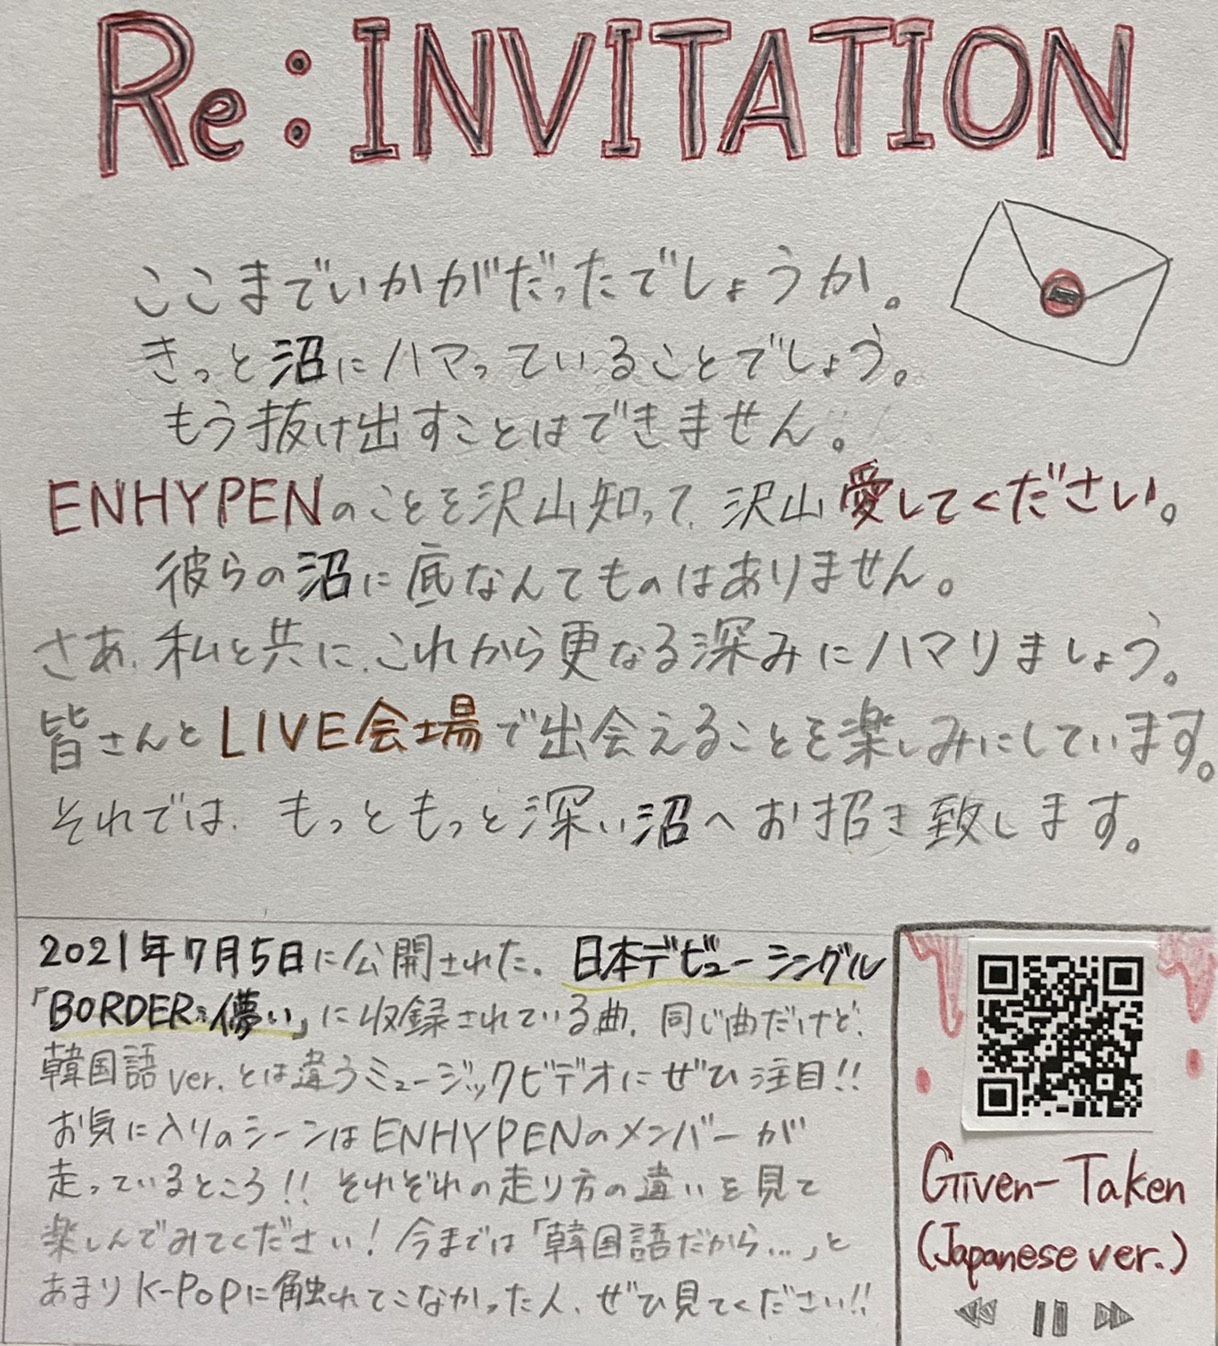 Re:INVITATION
ここまでいかがだったでしょうか。
きっと沼にハマっていることでしょう。
もう抜け出すことはできません。
ENHYPENのことを沢山知って、沢山愛してください。
彼らの沼に底なんてものはありません。
さあ、私と共に、これから更なる深みにハマりましょう。
皆さんとLIVE会場で出会えることを楽しみにしています。
それでは、もっともっと深い沼へお招き致します。
2021年7月5日に公開された、日本デビューシングル
「BORDER:儚い」に収録されている曲、同じ曲だけど、
韓国語ver.とは違うミュージックビデオにぜひ注目!!
お気に入りのシーンはENHYPENのメンバーが
走っているところ!!それぞれの走り方の違いを見て
楽しんでみてください!今までは「韓国語だから…」と
あまりK-POPに触れてこなかった人、ぜひ見てください!!
Given-Taken
(Japanese ver.)